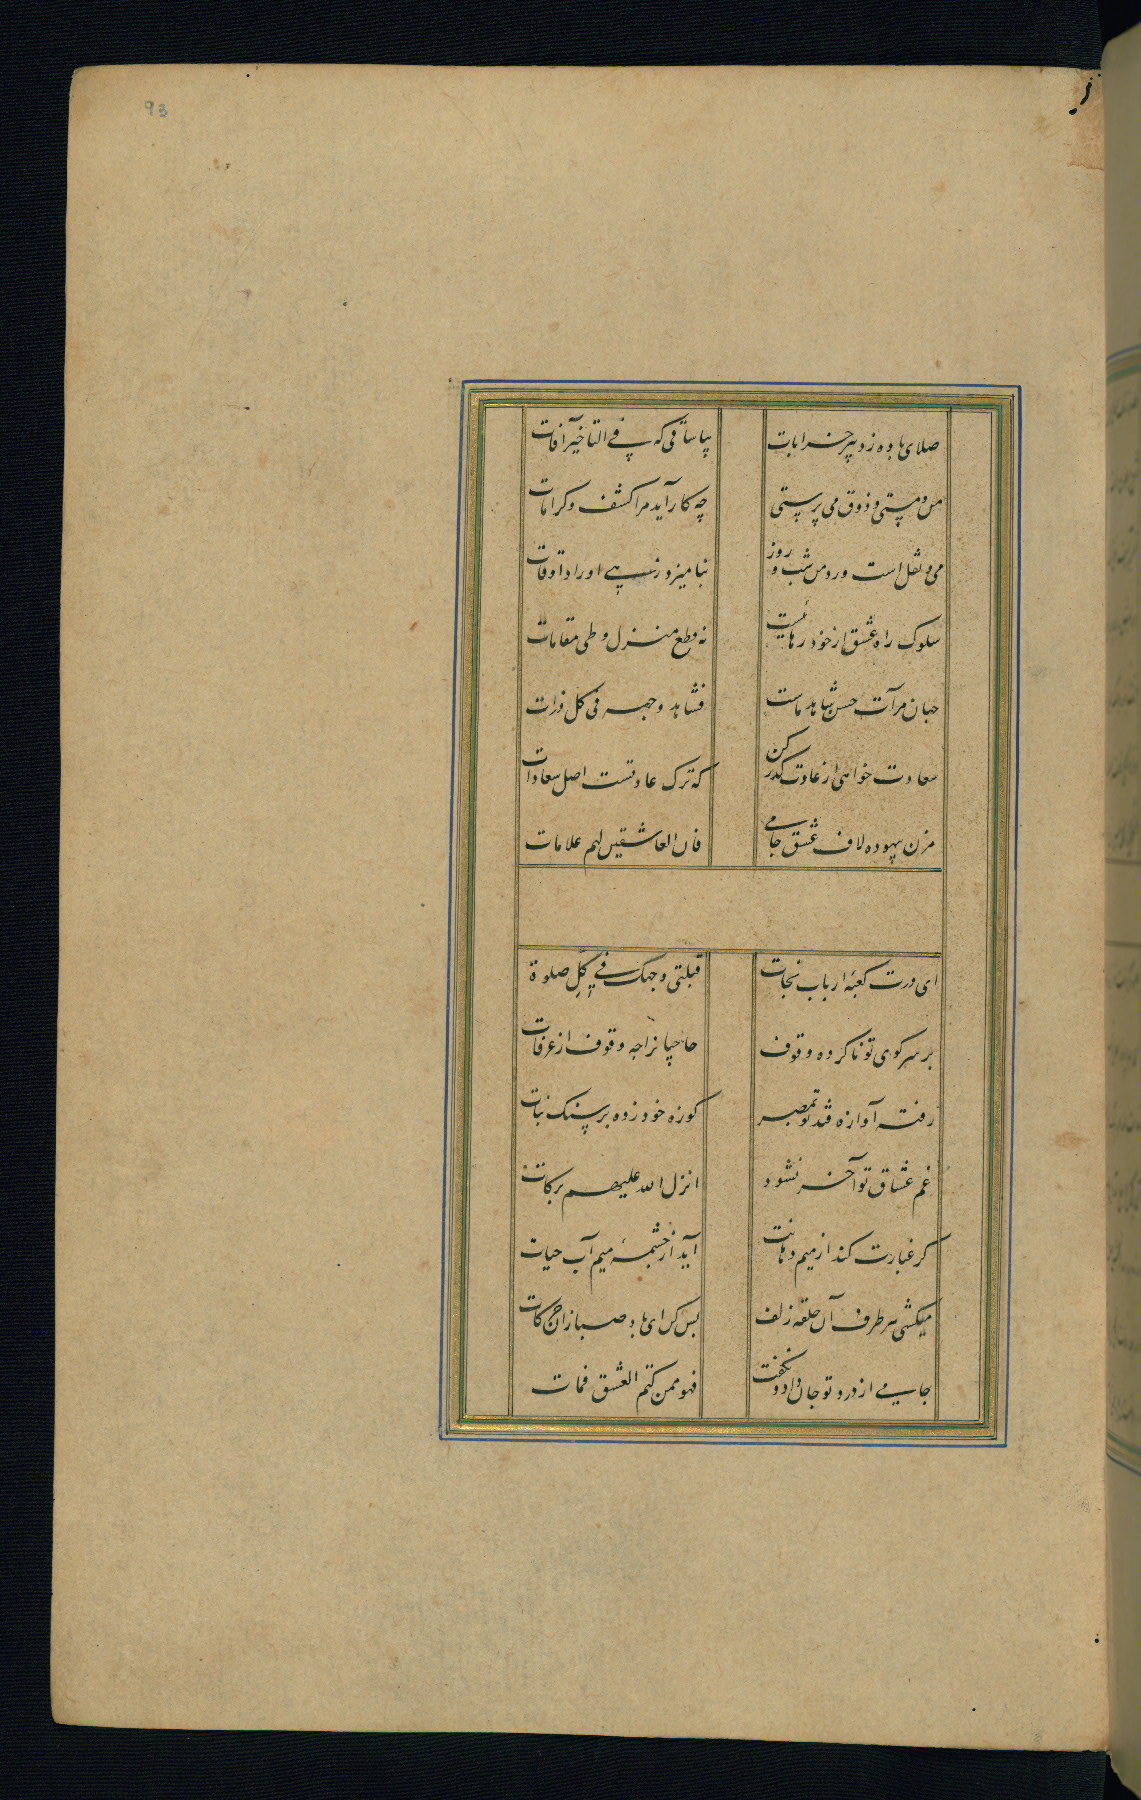 93
صلای باده زد پیر خرابات
بیا ساقی که فی التاخیر آفات
من و مستی و ذوق می پرستی
چه کار آید مرا کشف و کرامات
می و نقل است ورد من شب و روز
نیامیزد اوراد اوقات
سلوک راه عشق از خود رهائیست
نه قطع منزل و طی مقامات
جهان مرآت حسن شاهد ماست
فشاهد وجهه فی کل ذرات
سعادت خواهی از عادت گذر کن
که ترک عادتست اصل سعادات
مزن بیهوده لاف عشق جامی
فان العاشقین لهم علامات
ای درت کعبهٔ ارباب نجات
قبلتی وجهک فی کل صلوة
بر سر کوی تو ناکرده وقوف
حاجیانرا چه وقوف از عرفات
رفته آوازه قند تو بمصر
کوزه خود زده بر سنک نبات
غم عشاق تو آخر نشود
انزل الله علیهم برکات
کر عبارت کند از میم دهانت
آید از چشمهٔ میم آب حیات
میکشی هر طرف آن حلقه زلف
بس کن ای باد صبا زان حرکات
جامی از درد تو جان داد و نکفت
فهو ممن کتم العشق فمات